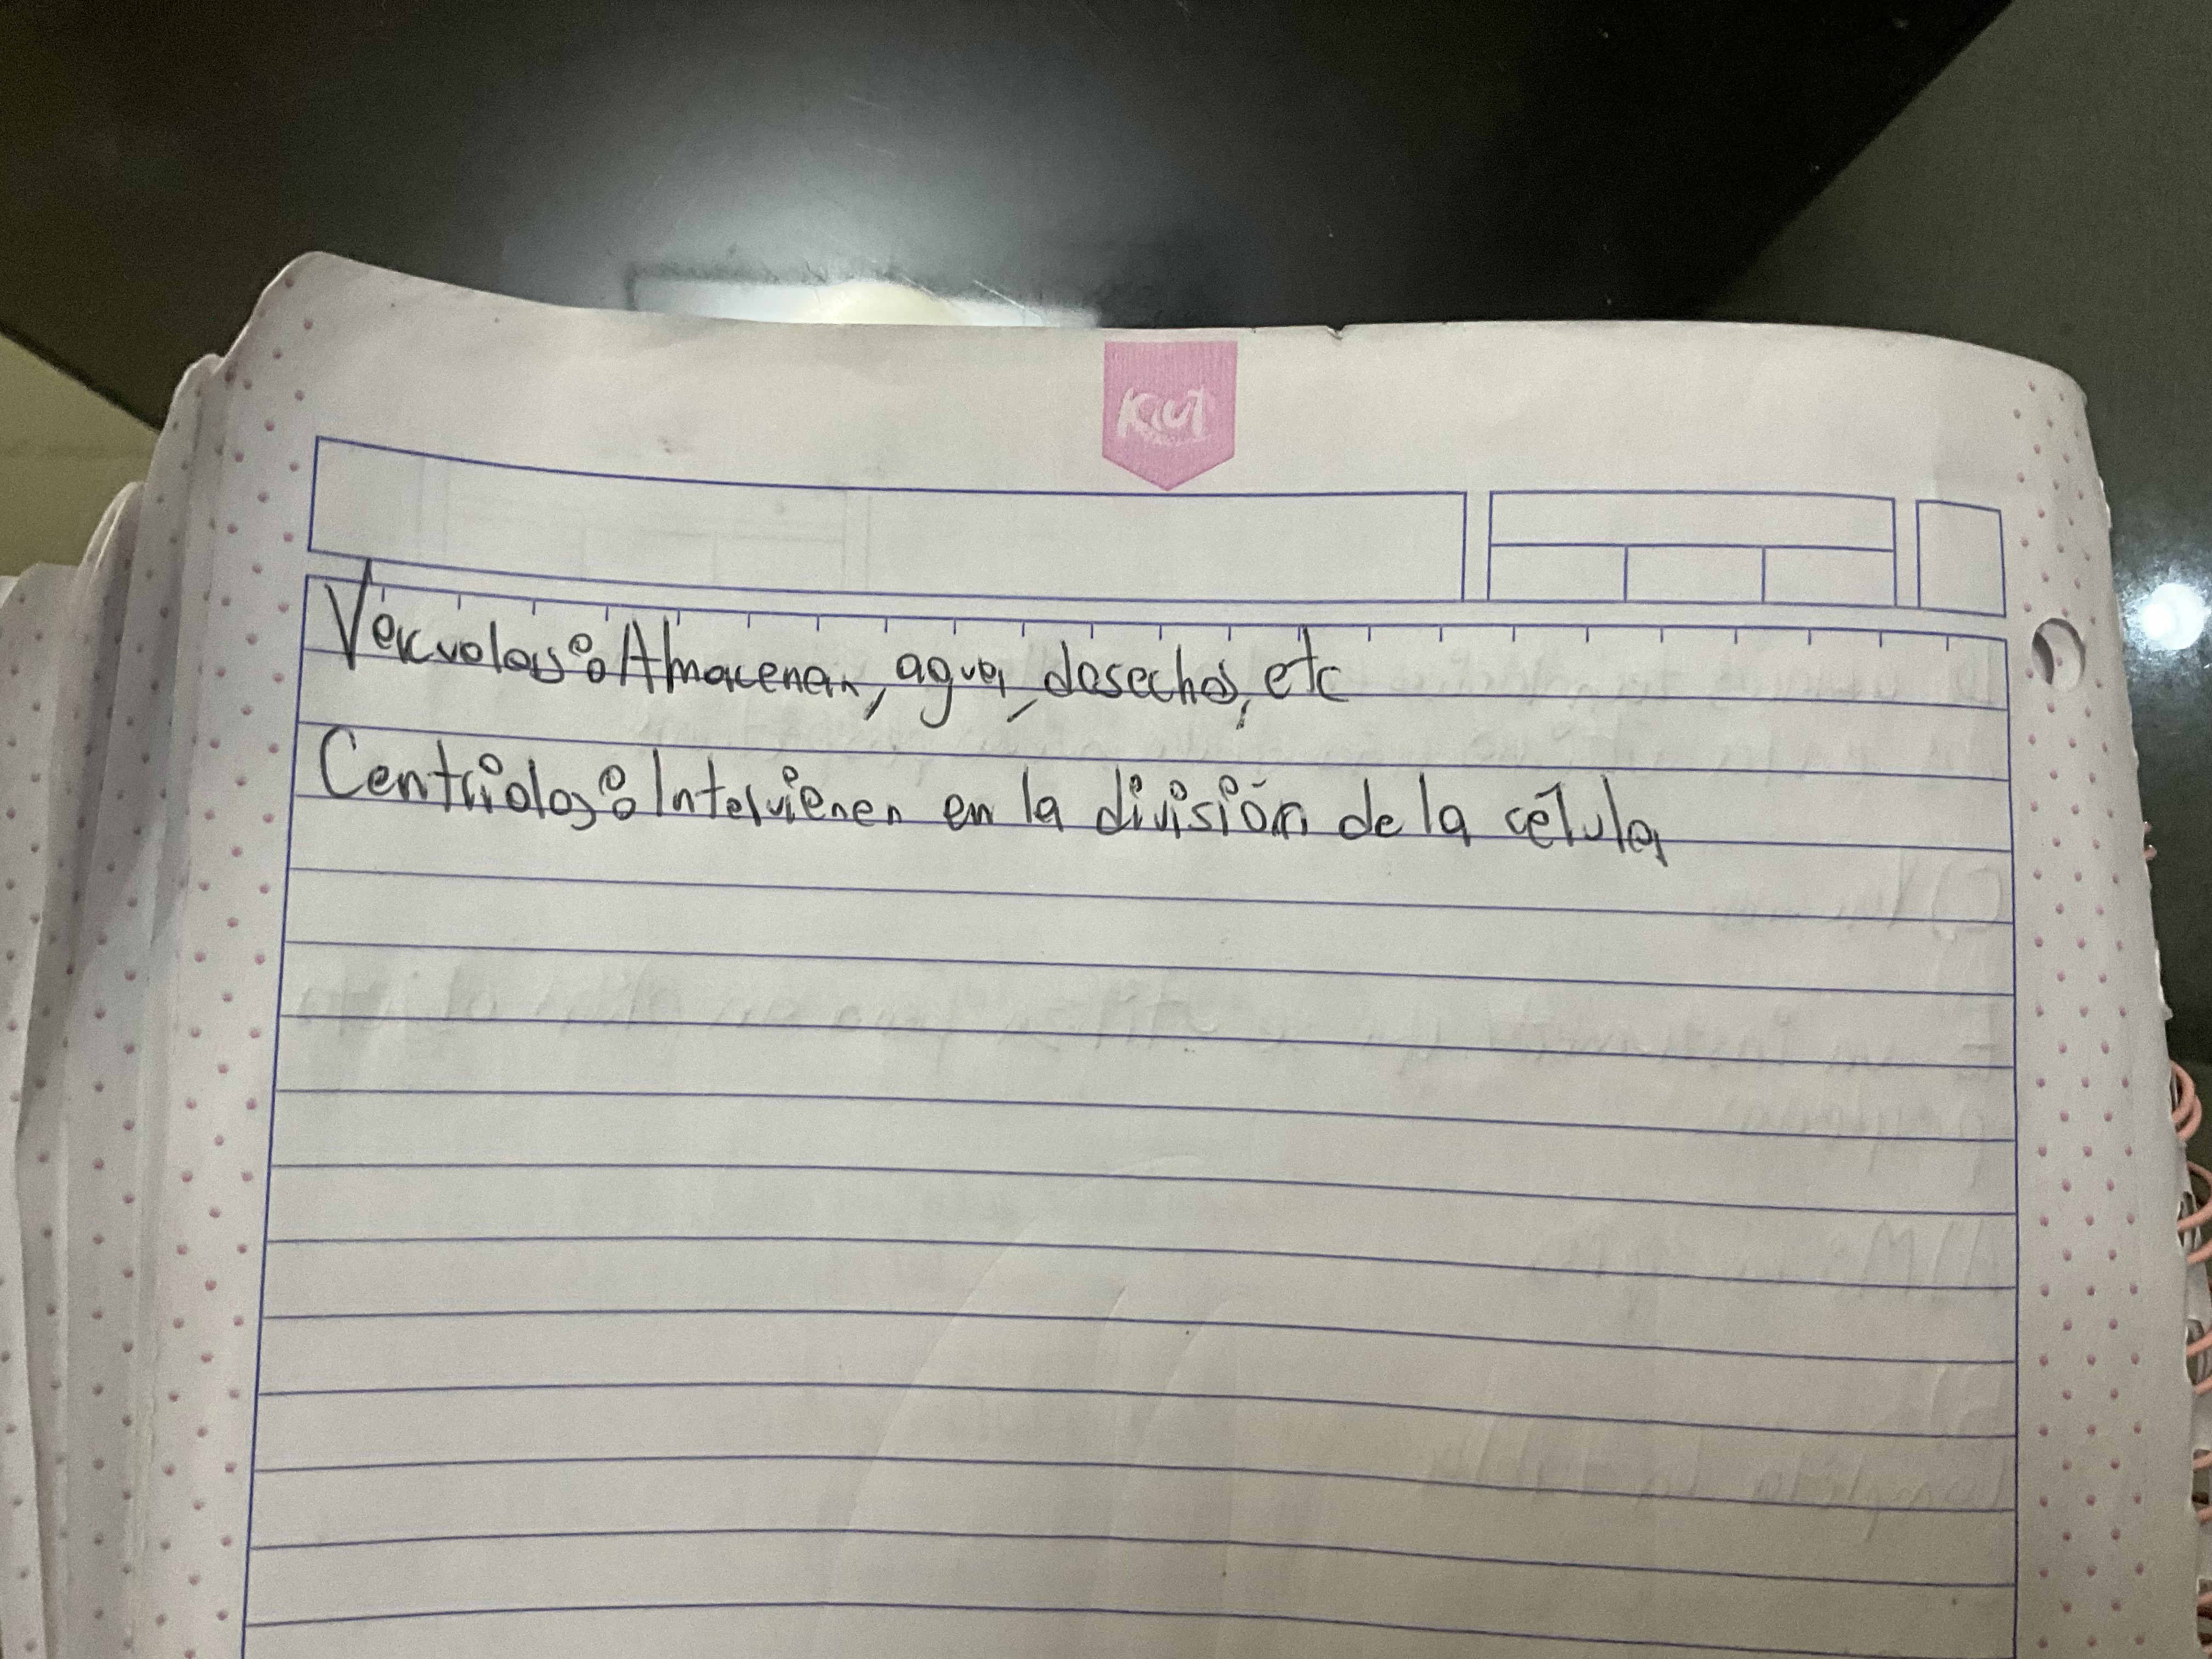 Kiut
Vacuolas: Almacenan, agua, desechos, etc
Centriolos: Intervienen en la división de la célula